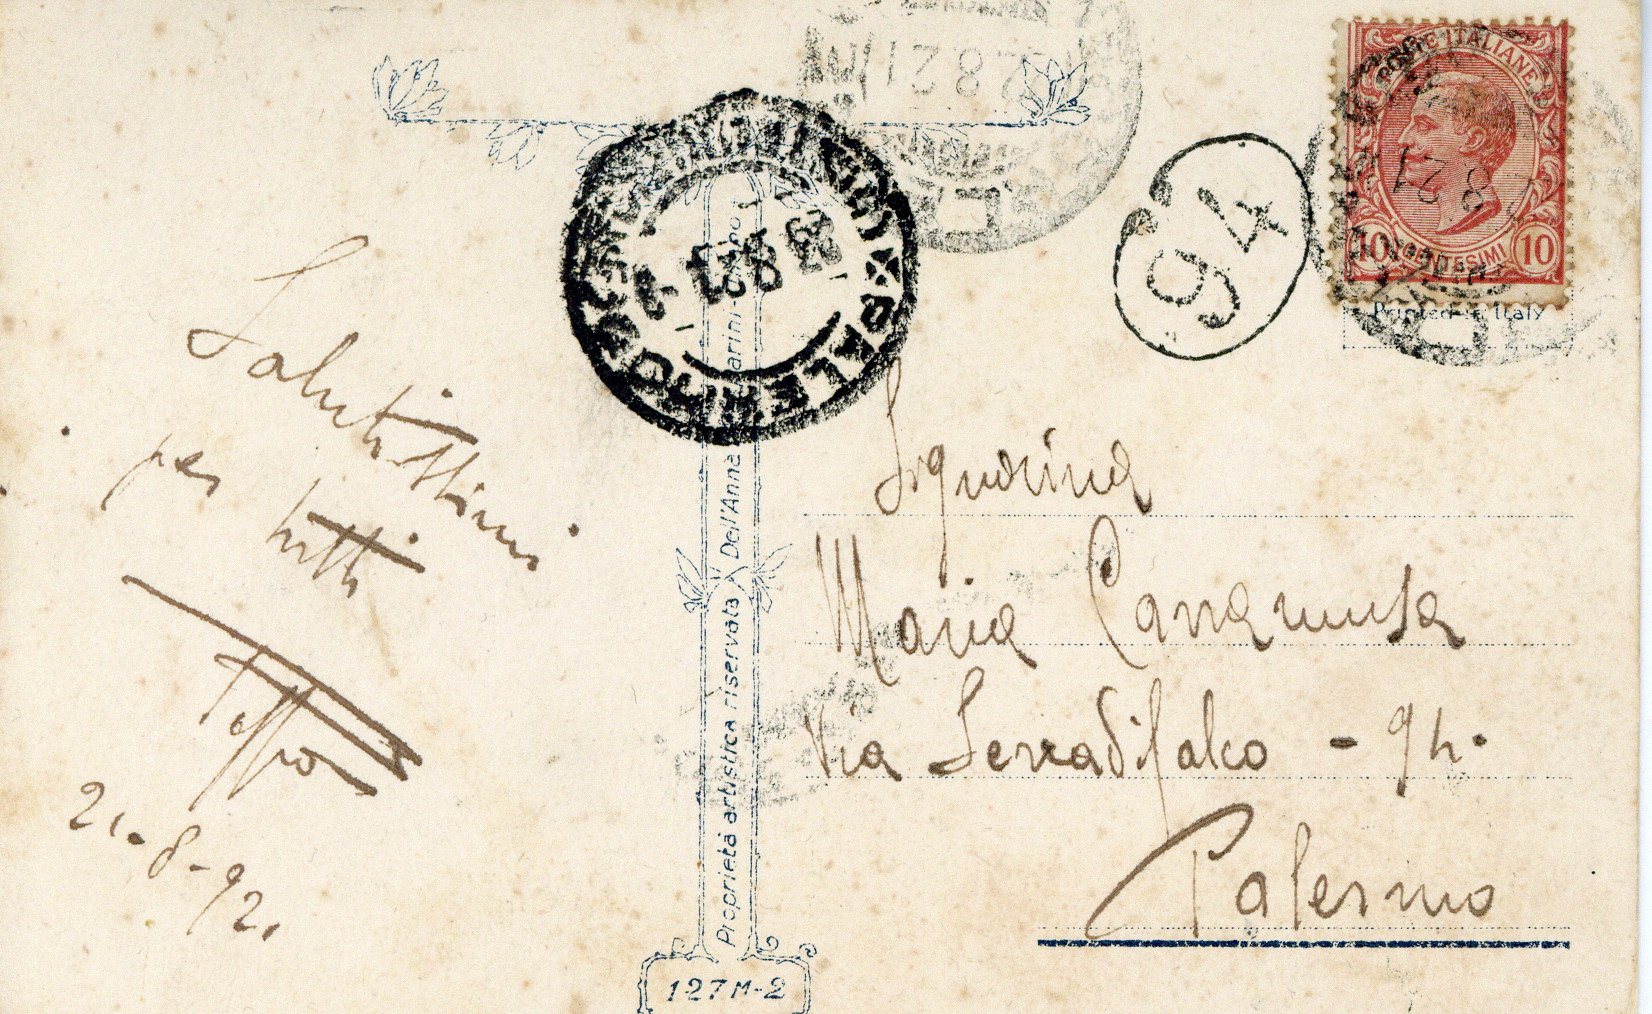 Salutissimi
per tutti
21-8-921
Proprietà artistica riservata Dell'Anna
127 M-2
2 8 21
PALERMO
21
94
POSTE ITALIANE
8 21
10 CENTESIMI 10
Printed in Italy
Signorina
Maria Cannamusa
Via Serradifalco - 94.
Palermo